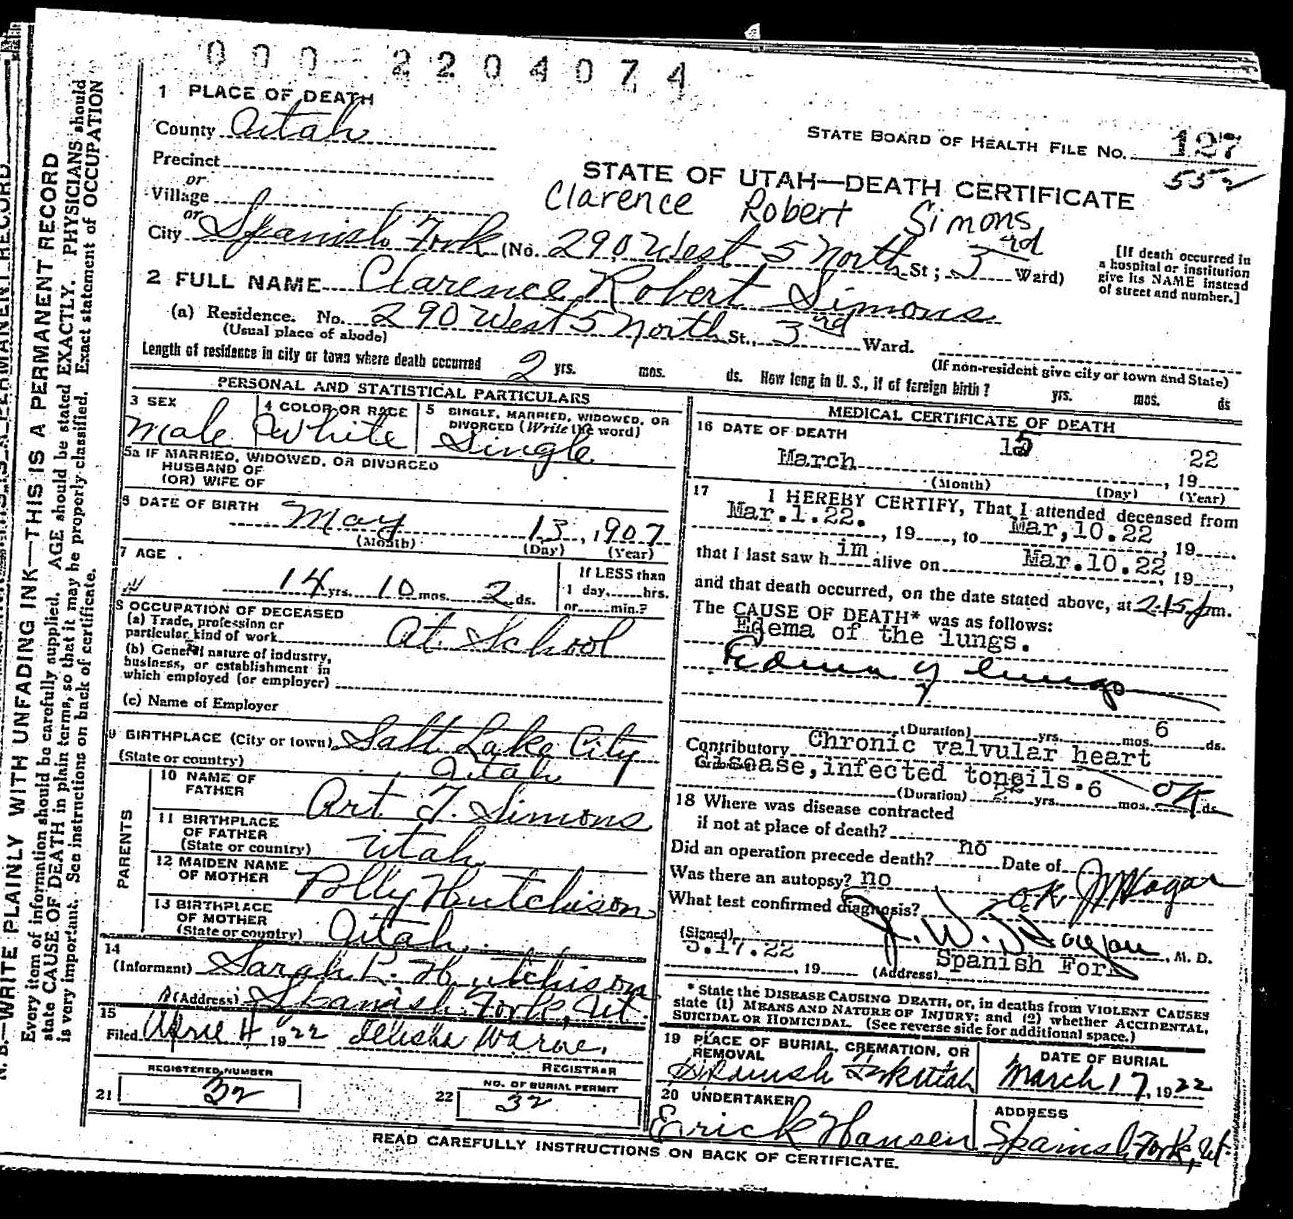 000 2204074
1 PLACE OF DEATH
County Utah
STATE BOARD OF HEALTH FILE NO. 127
552
Precinct
or
Village
STATE OF UTAH—DEATH CERTIFICATE
Clarence Robert Simons
or
City Spanish Fork (No. 290 West 5 North St; 3rd Ward)
[If death occurred in a hospital or institution give its NAME instead of street and number.]
2 FULL NAME Clarence Robert Simons
(a) Residence. No. 290 West 5 North St., 3rd Ward.
(Usual place of abode)
(If non-resident give city or town and State)
Length of residence in city or town where death occurred 2 yrs. mos. ds. How long in U. S., if of foreign birth? yrs. mos. ds
PERSONAL AND STATISTICAL PARTICULARS
3 SEX
Male
4 COLOR OR RACE
White
5 SINGLE, MARRIED, WIDOWED, OR DIVORCED (Write the word)
Single
5a IF MARRIED, WIDOWED, OR DIVORCED
HUSBAND OF
(OR) WIFE OF
6 DATE OF BIRTH
May 13, 1907
(Month) (Day) (Year)
7 AGE
14 yrs. 10 mos. 2 ds.
If LESS than
1 day, hrs.
or min.?
8 OCCUPATION OF DECEASED
(a) Trade, profession or
particular kind of work At School
(b) General nature of industry,
business, or establishment in
which employed (or employer)
(c) Name of Employer
9 BIRTHPLACE (City or town) Salt Lake City
(State or country) Utah
PARENTS
10 NAME OF FATHER Art F. Simons
11 BIRTHPLACE OF FATHER
(State or country) Utah
12 MAIDEN NAME OF MOTHER Polly Hutchison
13 BIRTHPLACE OF MOTHER
(State or country) Utah
14
(Informant) Sarah P. Hutchison
(Address) Spanish Fork, Ut.
15
Filed April 4 1922 Warne.
REGISTRAR
REGISTERED NUMBER
21 32
NO. OF BURIAL PERMIT
22 32
MEDICAL CERTIFICATE OF DEATH
16 DATE OF DEATH
March 15, 1922
(Month) (Day) (Year)
17 I HEREBY CERTIFY, That I attended deceased from
Mar.1.22., 19, to Mar,10.22, 19
that I last saw him alive on Mar.10.22, 19,
and that death occurred, on the date stated above, at 2.15 pm.
The CAUSE OF DEATH* was as follows:
Edema of the lungs.
Edema of lungs
(Duration) yrs. mos. 6 ds.
Contributory Chronic valvular heart
disease,infected tonsils.
(Duration) yrs. 6 mos. ds
OK
18 Where was disease contracted
if not at place of death?
Did an operation precede death? no Date of
Was there an autopsy? no
What test confirmed diagnosis?
OK JWHagan
(Signed) J. W. Hagan, M. D.
3.17.22, 19 (Address) Spanish Fork
* State the DISEASE CAUSING DEATH, or, in deaths from VIOLENT CAUSES
state (1) MEANS AND NATURE OF INJURY; and (2) whether ACCIDENTAL,
SUICIDAL OR HOMICIDAL. (See reverse side for additional space.)
19 PLACE OF BURIAL, CREMATION, OR REMOVAL
Spanish Fork Utah
DATE OF BURIAL
March 17, 1922
20 UNDERTAKER
Erick Hansen
ADDRESS
Spanish Fork, Ut
READ CAREFULLY INSTRUCTIONS ON BACK OF CERTIFICATE.
N. B.—WRITE PLAINLY WITH UNFADING INK—THIS IS A PERMANENT RECORD
Every item of information should be carefully supplied. AGE should be stated EXACTLY. PHYSICIANS should
state CAUSE OF DEATH in plain terms, so that it may be properly classified. Exact statement of OCCUPATION
is very important. See instructions on back of certificate.